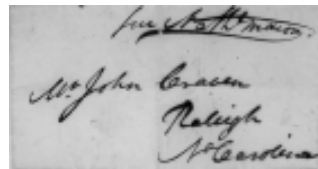 free Nath Macon
Mr John Craven
Raleigh
No Carolina